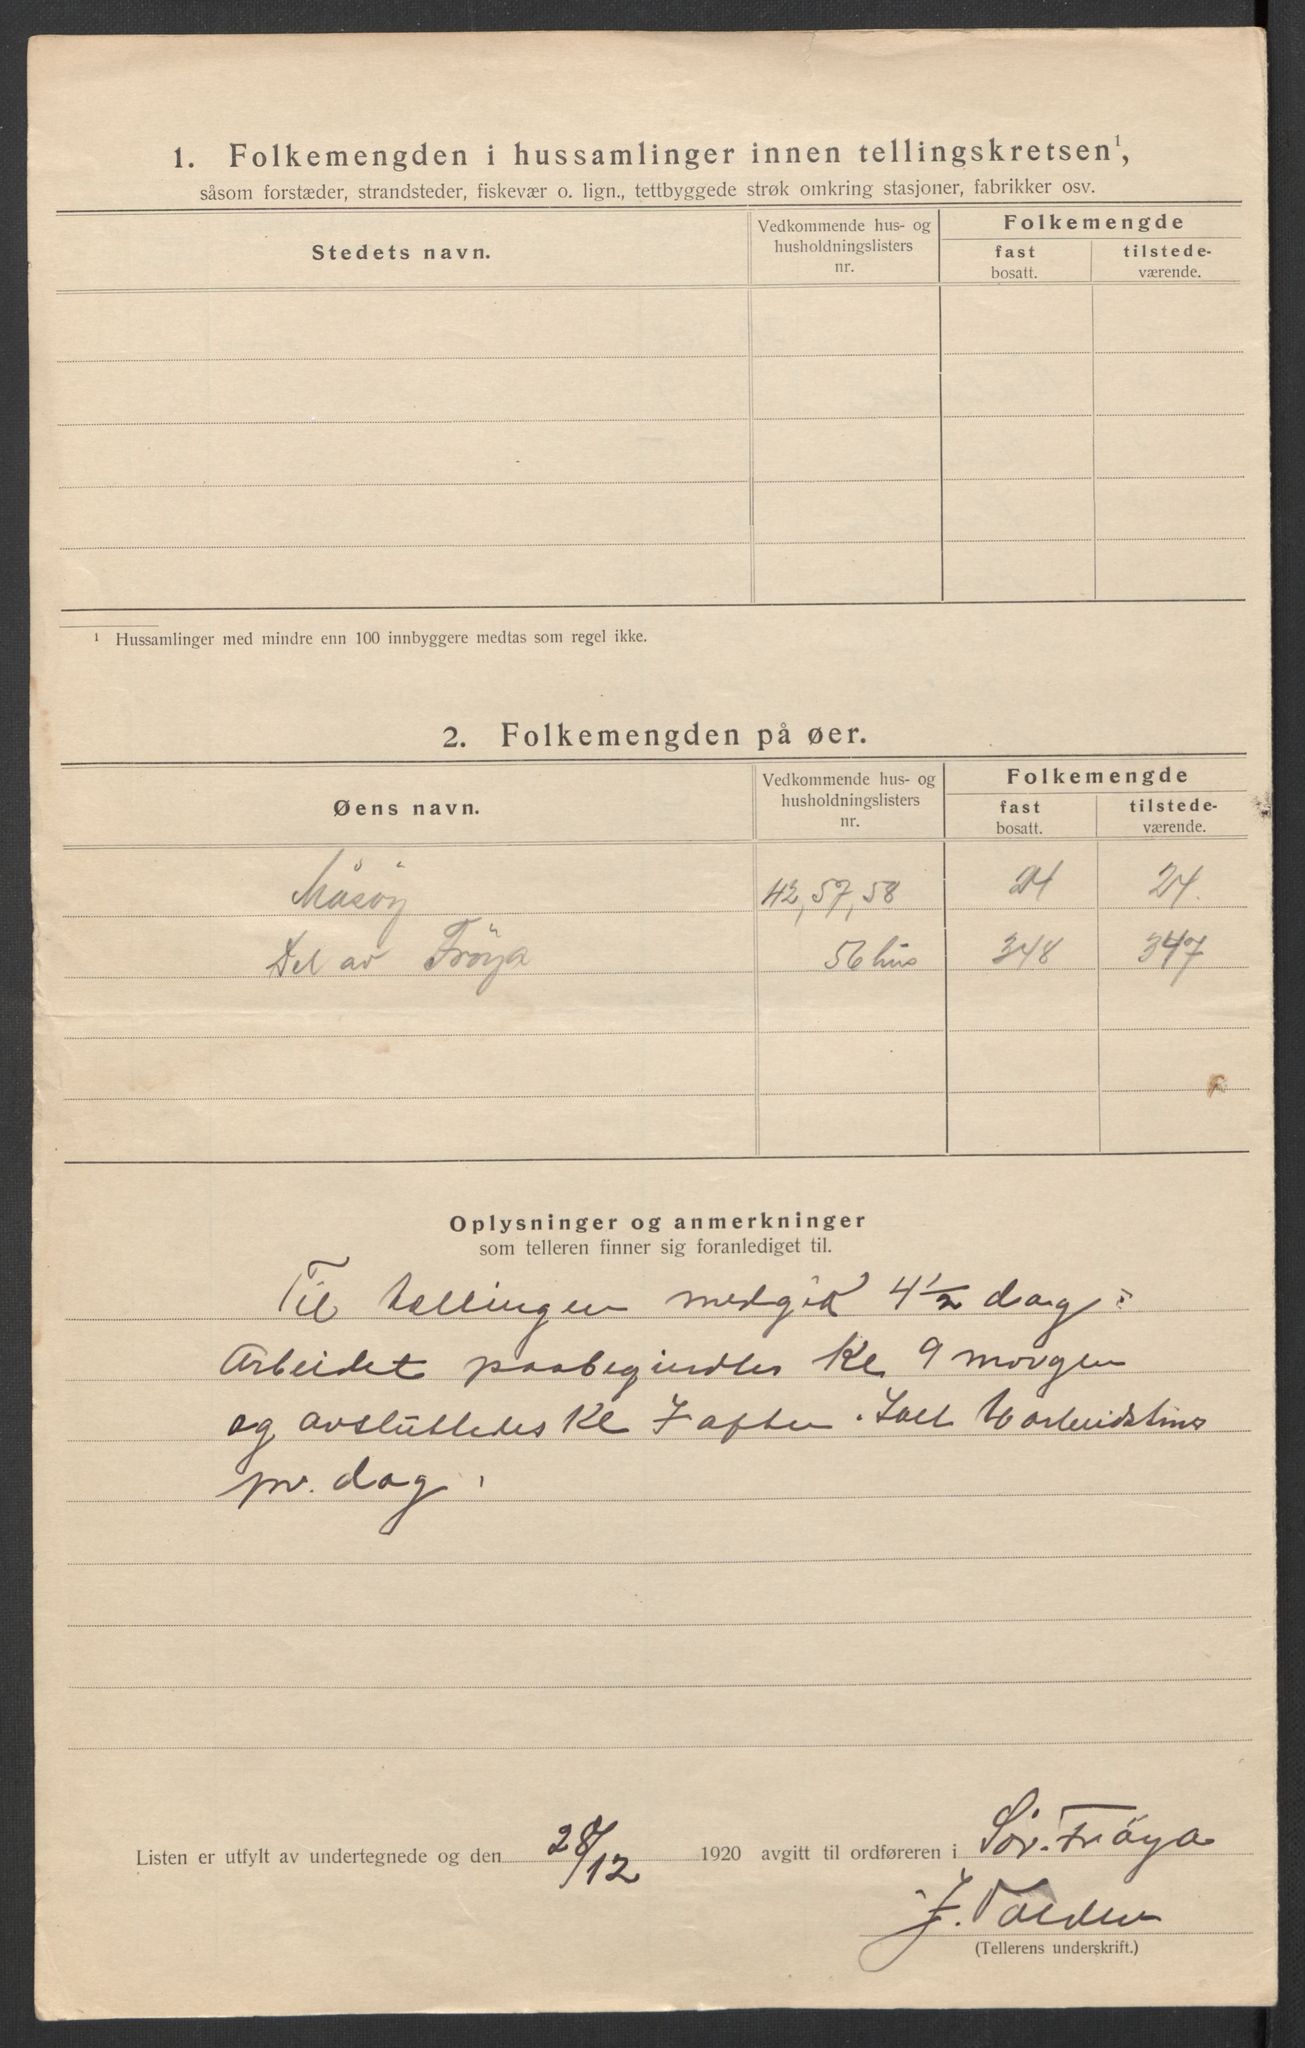 1. Folkemengden i hussamlinger innen tellingskretsen¹,
såsom forstæder, strandsteder, fiskevær o. lign., tettbyggede strøk omkring stasjoner, fabrikker osv.
Stedets navn.
Vedkommende hus- og husholdningslisters nr.
Folkemengde
fast bosatt.
tilstede-værende.
¹ Hussamlinger med mindre enn 100 innbyggere medtas som regel ikke.
2. Folkemengden på øer.
Øens navn.
Vedkommende hus- og husholdningslisters nr.
Folkemengde
fast bosatt.
tilstede-værende.
Måsöy 42, 57, 58 24 24.
Del av Fröya 56 hus 348 347
Oplysninger og anmerkninger
som telleren finner sig foranlediget til.
Til tællingen medgik 4½ dag.
Arbeidet paabegyndtes Kl 9 morgen
og avsluttedes Kl 7 aften. Ialt
pr. dag.
Listen er utfylt av undertegnede og den 28/12 1920 avgitt til ordføreren i Sör-Fröya
(Tellerens underskrift.)